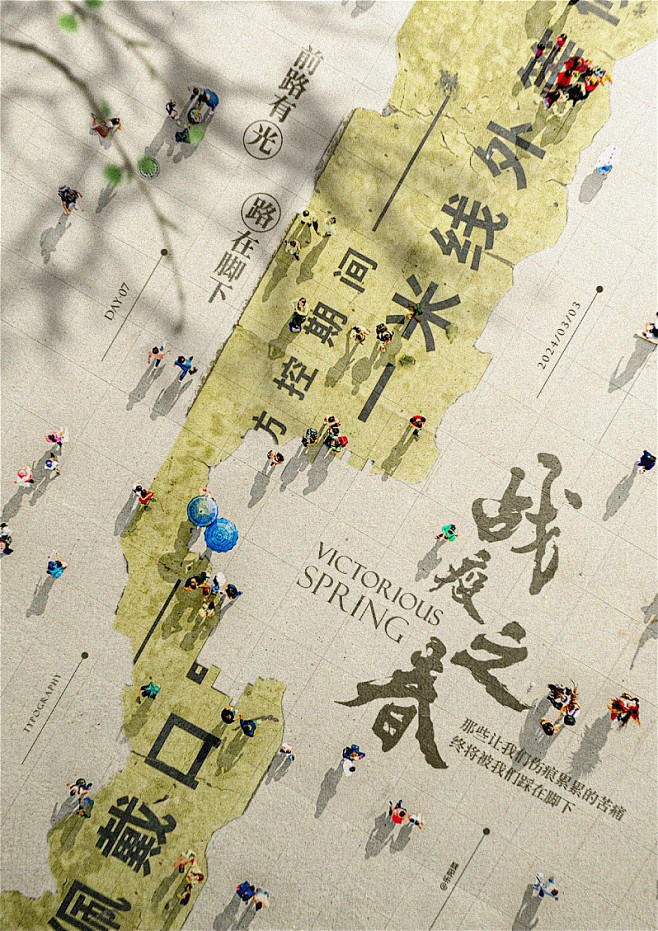 前路有光
路在脚下
DAY 07
一米线外等候
方控期间
2024/03/03
战疫之春
VICTORIOUS
SPRING
那些让我们伤痕累累的苦痛
终将被我们踩在脚下
TYPOGRAPHY
佩戴口